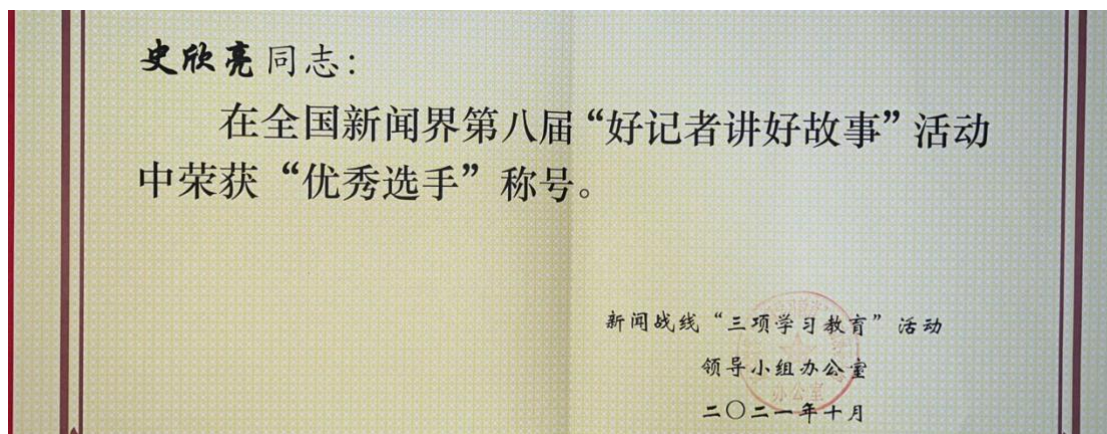 史欣亮同志：
在全国新闻界第八届“好记者讲好故事”活动
中荣获“优秀选手”称号。
新闻战线“三项学习教育”活动
领导小组办公室
办公室
二〇二一年十月